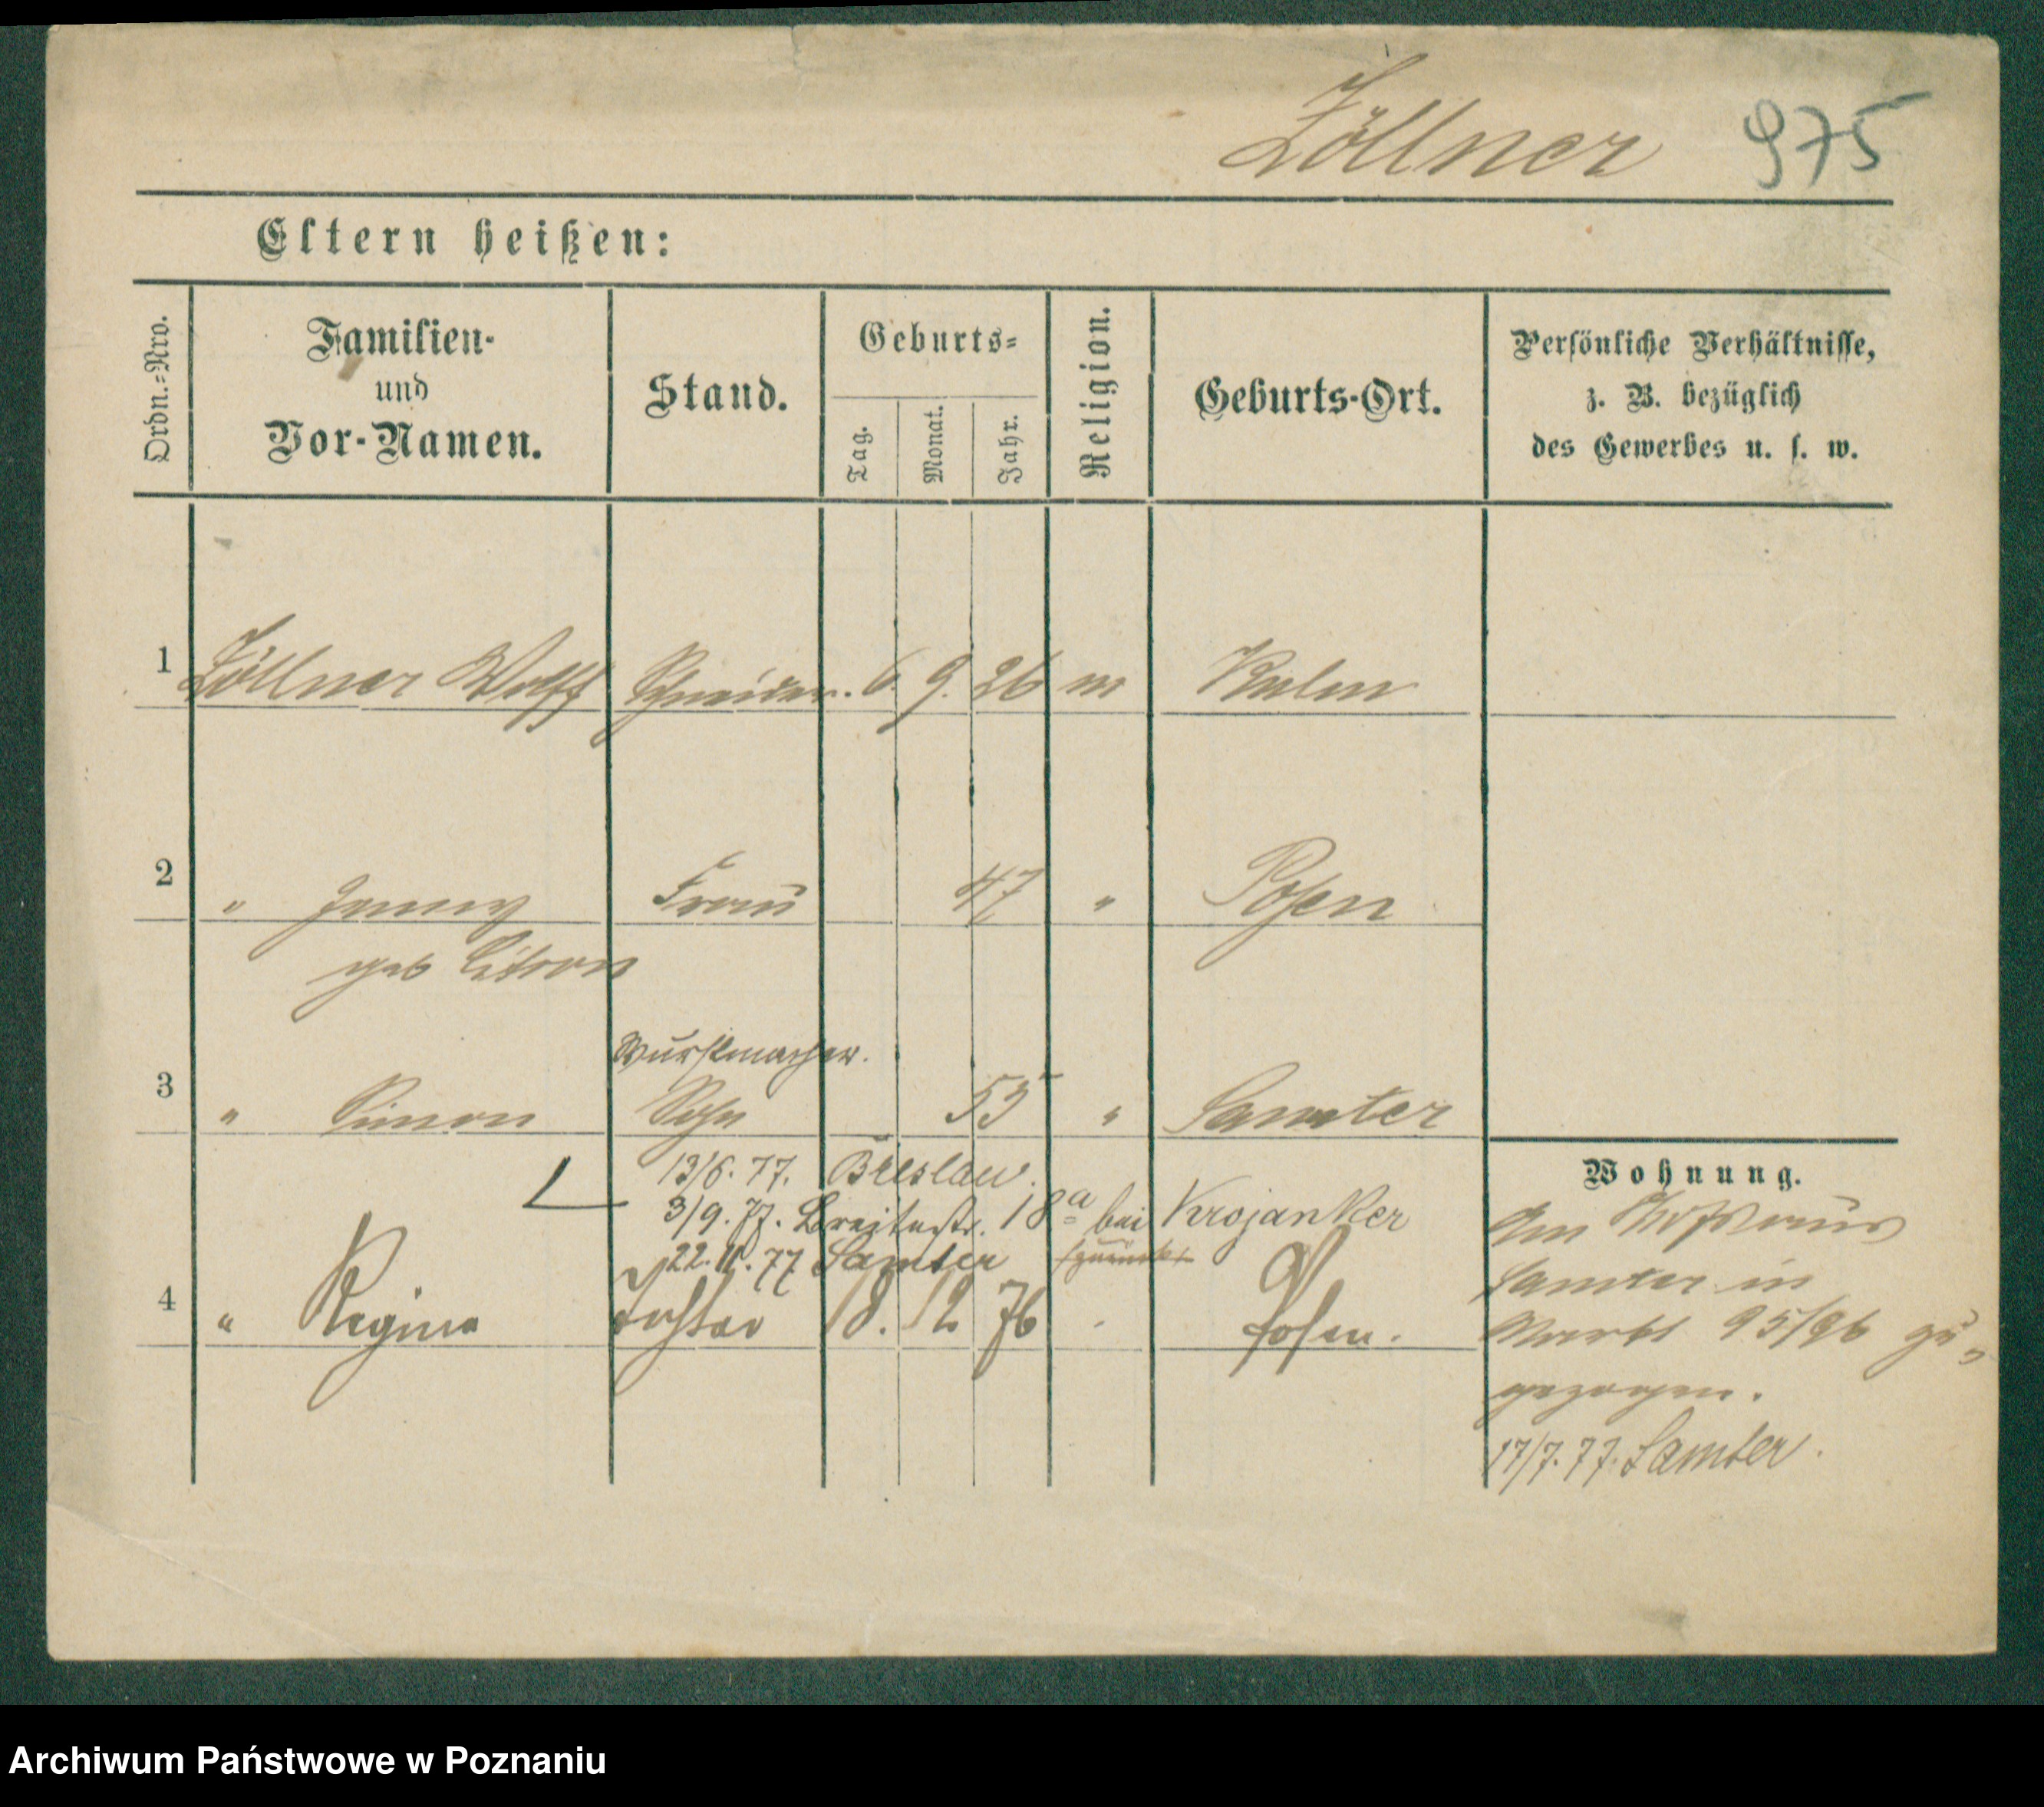 Zöllner 975
Eltern heißen:
Ordn.=Nro.
Familien-
und
Vor-Namen.
Stand.
Geburts=
Tag.
Monat.
Jahr.
Religion.
Geburts-Ort.
Persönliche Verhältnisse,
z. B. bezüglich
des Gewerbes u. s. w.
1 Zöllner Wolff Schneider. 6. 9. 26 m
2 " Jenny Frau 47 " Posen
geb Citron
Wurstmacher.
3 " Simon Sohn 53 " Samter
13/6. 77. Breslau.
3/9. 77. Breitestr. 18a bei Krojanker
22. 11. 77 Samter
4 " Regina Tochter 18. 12 76 Posen.
Wohnung.
Am
Samter in
Markt 95/96 zu=
gezogen.
17/7. 77. Samter.
Archiwum Państwowe w Poznaniu